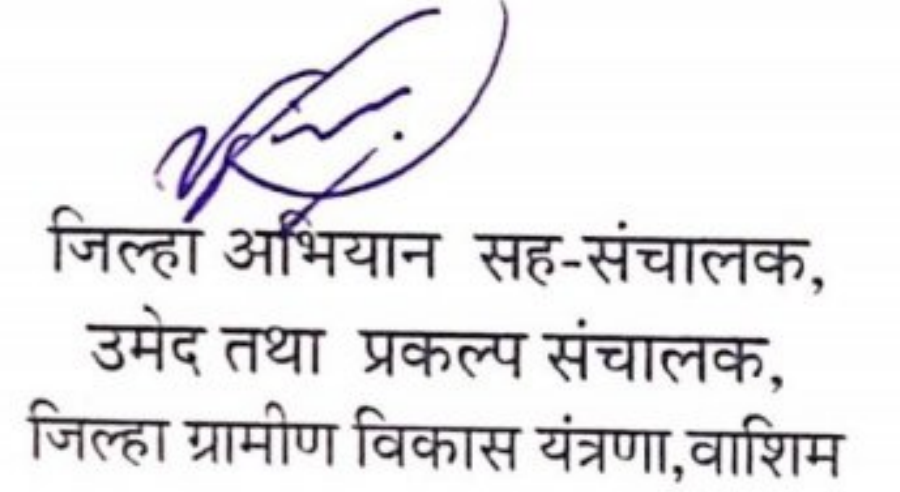 जिल्हा अभियान सह-संचालक,
उमेद तथा प्रकल्प संचालक,
जिल्हा ग्रामीण विकास यंत्रणा,वाशिम